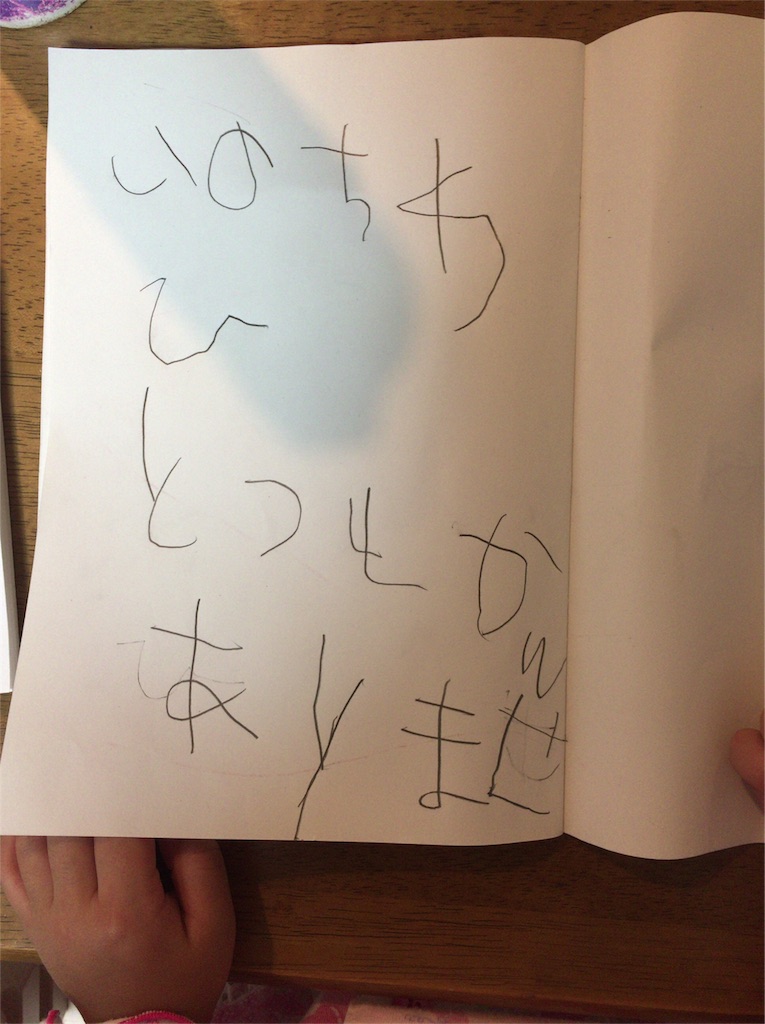 いのちわ
ひ
とつしか
ありません